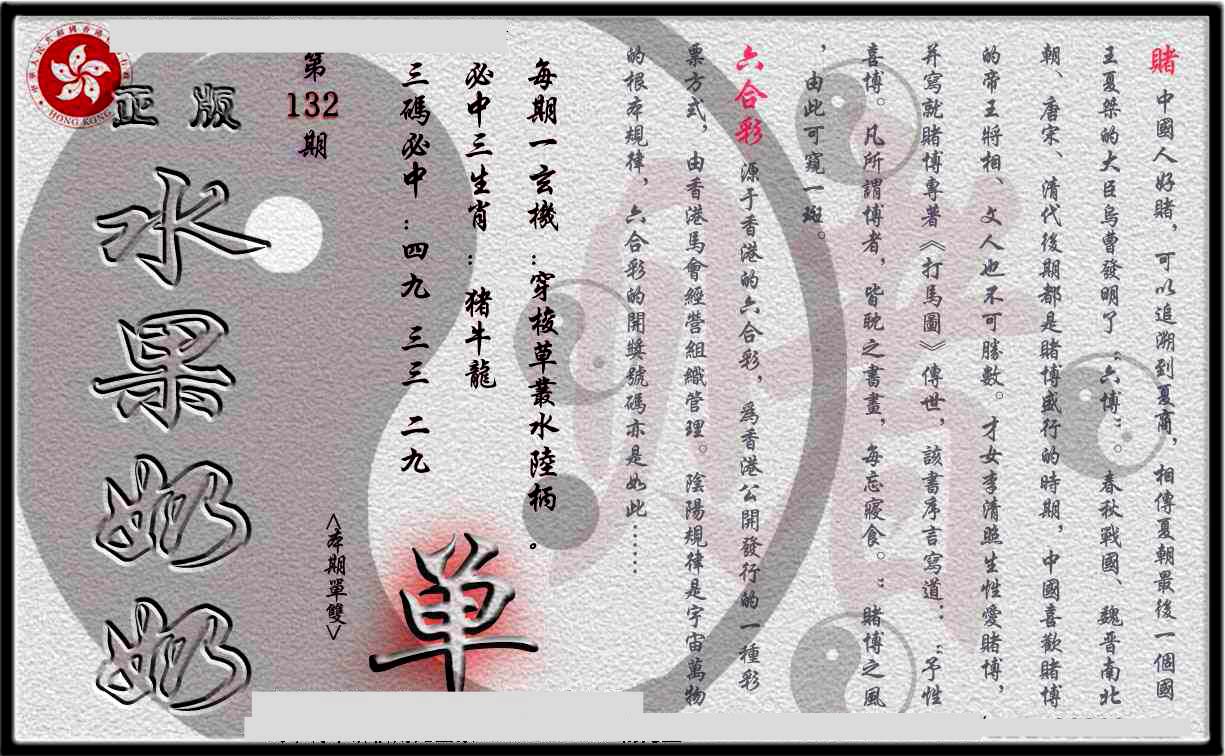 賭 中國人好賭，可以追溯到夏商，相傳夏朝最後一個國
王夏桀的大臣烏曹發明了“六博”。春秋戰國、魏晋南北
朝、唐宋、清代後期都是賭博盛行的時期，中國喜歡賭博
的帝王將相、文人也不可勝數。才女李清照生性愛賭博，
并寫就賭博專著《打馬圖》傳世，該書序言寫道：“予性
喜博。凡所謂博者，皆耽之書畫，每忘寢食。”賭博之風
，由此可窺一斑。
六合彩 源于香港的六合彩，爲香港公開發行的一種彩
票方式，由香港馬會經營組織管理。陰陽規律是宇宙萬物
的根本規律，六合彩的開獎號碼亦是如此……
每期一玄機：穿梭草叢水陸柄。
必中三生肖：猪牛龍
三碼必中：四九 三三 二九
<本期單雙>
单
第
132
期
正版
水果奶奶
HONG KONG